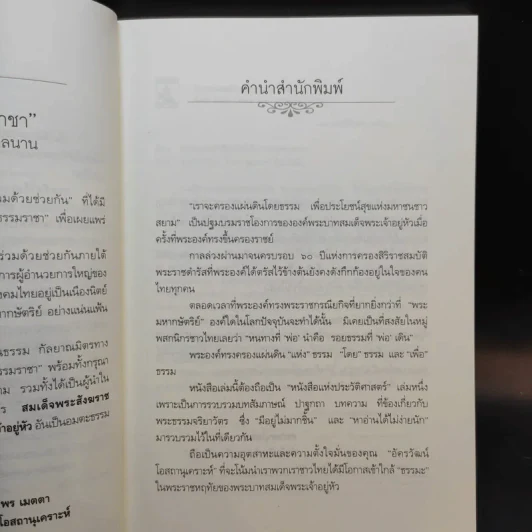 าชา”
ลนาน
มด้วยช่วยกัน” ที่ได้มี
ธรรมราชา” เพื่อเผยแพร่
ร่วมด้วยช่วยกันภายใต้
การผู้อำนวยการใหญ่ของ
งคมไทยอยู่เป็นเนืองนิตย์
มหากษัตริย์ อย่างแน่นแฟ้น
นธรรม กัลยาณมิตรทาง
รรมราชา” พร้อมทั้งกรุณา
าม รวมทั้งได้เป็นผู้นำใน
ร สมเด็จพระสังฆราช
จ้าอยู่หัว อันเป็นอมตะธรรม
พร เมตตา
โอสถานุเคราะห์
คำนำสำนักพิมพ์
“เราจะครองแผ่นดินโดยธรรม เพื่อประโยชน์สุขแห่งมหาชนชาว
สยาม” เป็นปฐมบรมราชโองการขององค์พระบาทสมเด็จพระเจ้าอยู่หัวเมื่อ
ครั้งที่พระองค์ทรงขึ้นครองราชย์
กาลล่วงผ่านมาจนครบรอบ ๖๐ ปีแห่งการครองสิริราชสมบัติ
พระราชดำรัสที่พระองค์ได้ตรัสไว้ข้างต้นยังคงดังกึกก้องอยู่ในใจของคน
ไทยทุกคน
ตลอดเวลาที่พระองค์ทรงพระราชกรณียกิจที่ยากยิ่งกว่าที่ “พระ
มหากษัตริย์” องค์ใดในโลกปัจจุบันจะทำได้นั้น มิเคยเป็นที่สงสัยในหมู่
พสกนิกรชาวไทยเลยว่า “หนทางที่ ‘พ่อ’ นำคือ รอยธรรมที่ ‘พ่อ’ เดิน”
พระองค์ทรงครองแผ่นดิน “แห่ง” ธรรม “โดย” ธรรม และ “เพื่อ”
ธรรม
หนังสือเล่มนี้ต้องถือเป็น “หนังสือแห่งประวัติศาสตร์” เล่มหนึ่ง
เพราะเป็นการรวบรวมบทสัมภาษณ์ ปาฐกถา บทความ ที่ข้องเกี่ยวกับ
พระธรรมจริยาวัตร ซึ่ง “มีอยู่ไม่มากชิ้น” และ “หาอ่านได้ไม่ง่ายนัก”
มารวบรวมไว้ในที่เดียวกัน
ถือเป็นความอุตสาหะและความตั้งใจมั่นของคุณ “อัครวัฒน์
โอสถานุเคราะห์” ที่จะโน้มนำเราพวกเราชาวไทยได้มีโอกาสเข้าใกล้ “ธรรมะ”
ในพระราชหฤทัยของพระบาทสมเด็จพระเจ้าอยู่หัว